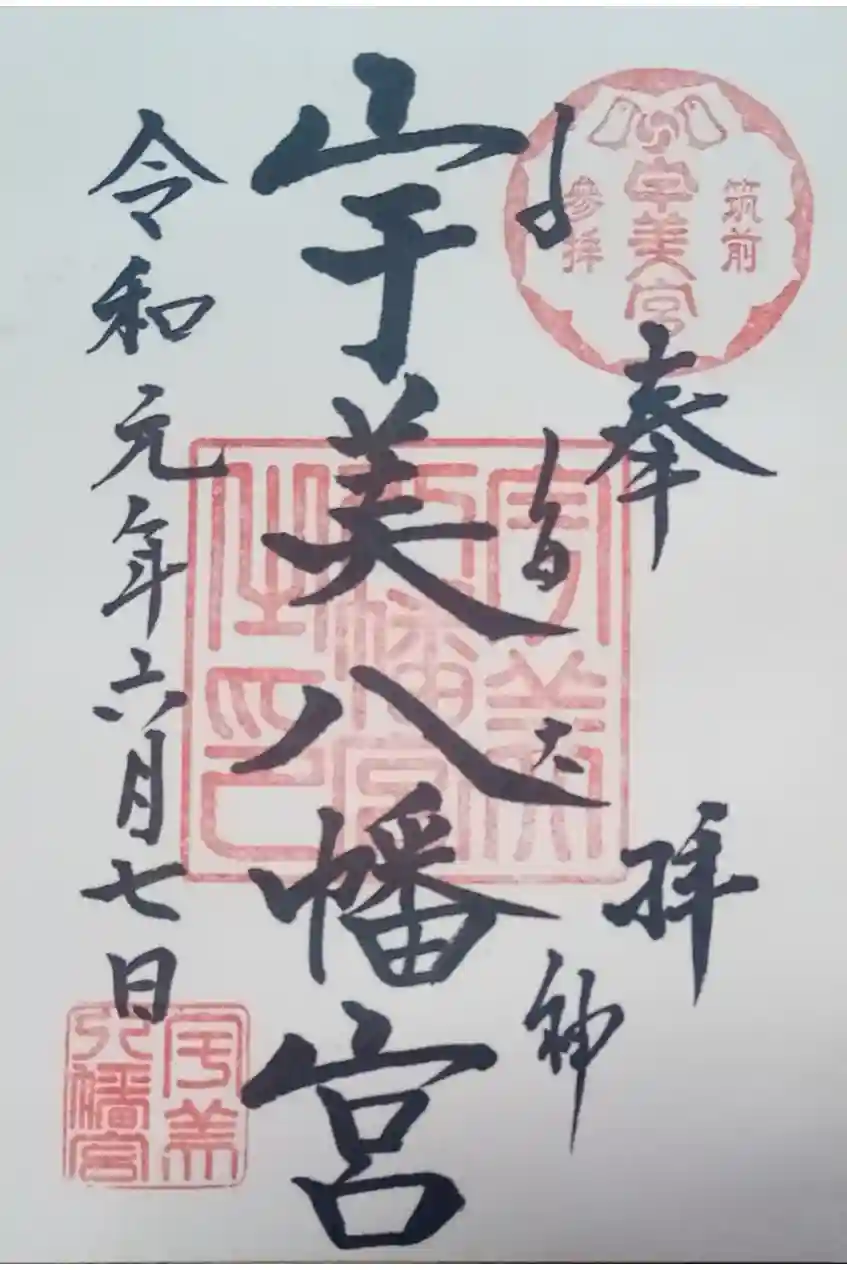 筑前
宇美宮
參拝
奉拝
大神
宇美八幡宮
宇美
八幡宮
印
令和元年六月七日
宇美
八幡宮